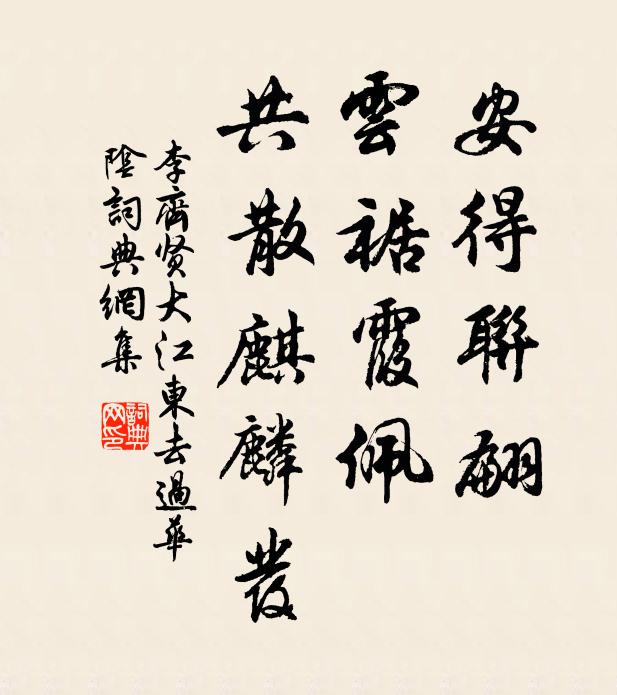 安得聯翩
雲裾霞佩
共散麒麟發
李齊贤大江東去過華
陰詞典網集
詞典
网印